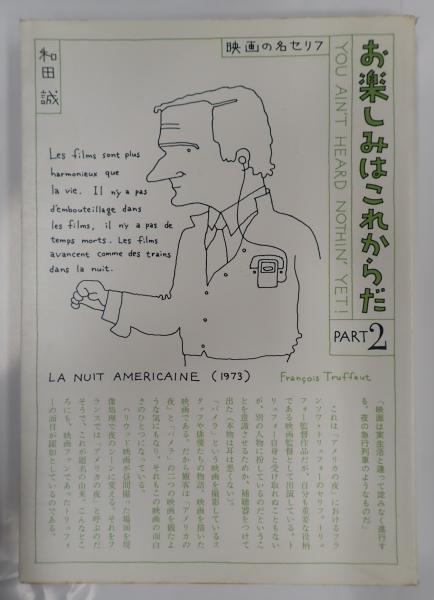 お楽しみはこれからだ
YOU AIN'T HEARD NOTHIN' YET!
PART2
映画の名セリフ
和田誠
Les films sont plus
harmonieux que
la vie. Il n'y a pas
d'embouteillage dans
les films, il n'y a pas de
temps morts. Les films
avancent comme des trains
dans la nuit.
LA NUIT AMERICAINE (1973)
François Truffaut
「映画は実生活と違って淀みなく進行す
る。夜の急行列車のようなものだ」
これは「アメリカの夜」におけるフラ
ンソワ・トリュフォーのセリフ。トリュ
フォー監督作品だが、自分も重要な役柄
である映画監督として出演している。ト
リュフォー自身と受け取れぬこともない
が、別の人物に扮しているのだというこ
とを意識させるためか、補聴器をつけて
出た（本物は耳は悪くない）。
「パメラ」という映画を撮影しているス
タッフや俳優たちの物語。映画を描いた
映画である。だから観客は「アメリカの
夜」と「パメラ」の二つの映画を観たよ
うな気にもなり、それもこの映画の面白
さのひとつになっている。
ハリウッド映画が昼間撮った場面を現
像処理で夜のシーンに変える。それをフ
ランスでは「アメリカの夜」と呼ぶのだ
そうで、これが題名の由来。こんなとこ
ろにも、映画ファンであったトリュフォ
ーの面目が躍如としているのである。